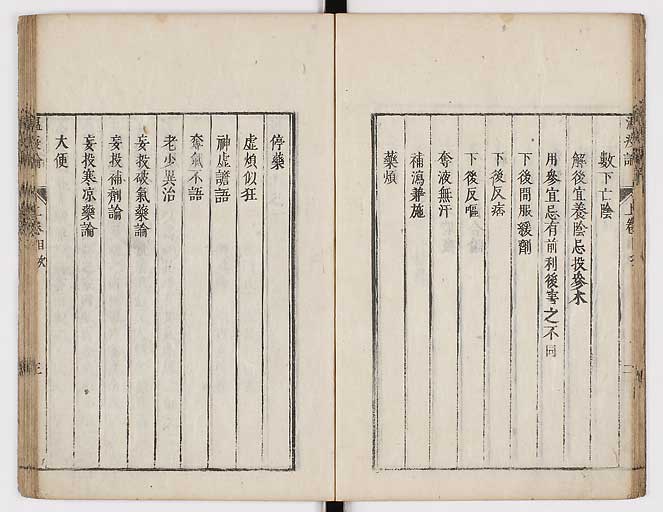 數下亡陰
解後宜養陰忌投參朮
用參宜忌有前利後害之不同
下後間服緩劑
下後反痞
下後反嘔
奪液無汗
補瀉兼施
藥煩
停藥
虛煩似狂
神虛譫語
奪氣不語
老少異治
妄投破氣藥論
妄投補劑論
妄投寒凉藥論
大便
上卷目次
三